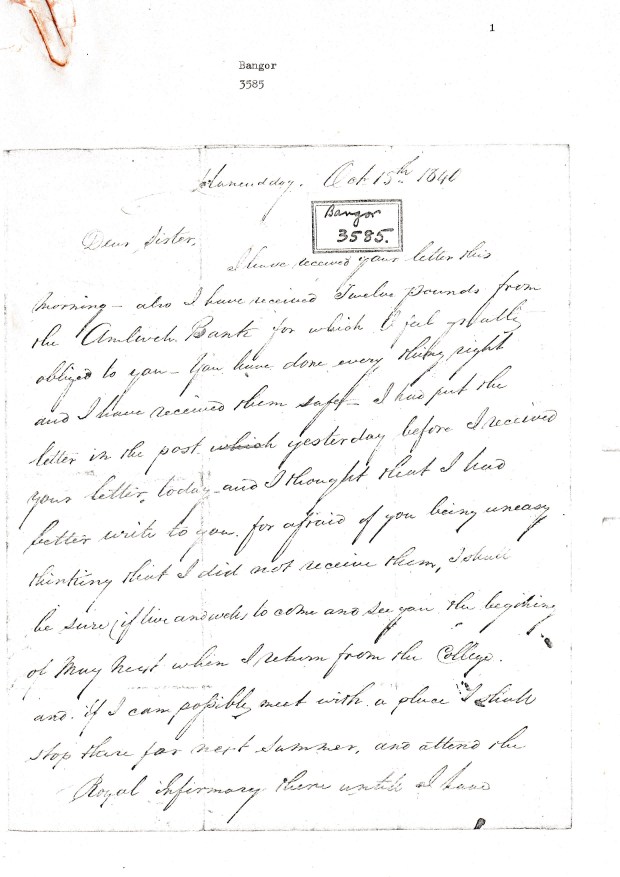 1
Bangor
3585
Llaneuddog. Oct 13th 1840
Bangor
3585.
Dear Sister,
I have received your letter this
morning - also I have received Twelve pounds from
the Amlwch Bank for which I feel greatly
obliged to you - You have done every thing right
and I have received them safe - I had put the
letter in the post which yesterday before I received
your letter, today - and I thought that I had
better write to you. for afraid of you being uneasy
thinking that I did not receive them, I shall
be sure (if live and well) to come and see you the begining
of May next when I return from the College.
and if I can possibly meet with a place I shall
stop there for next summer, and attend the
Royal Infirmary there until I have